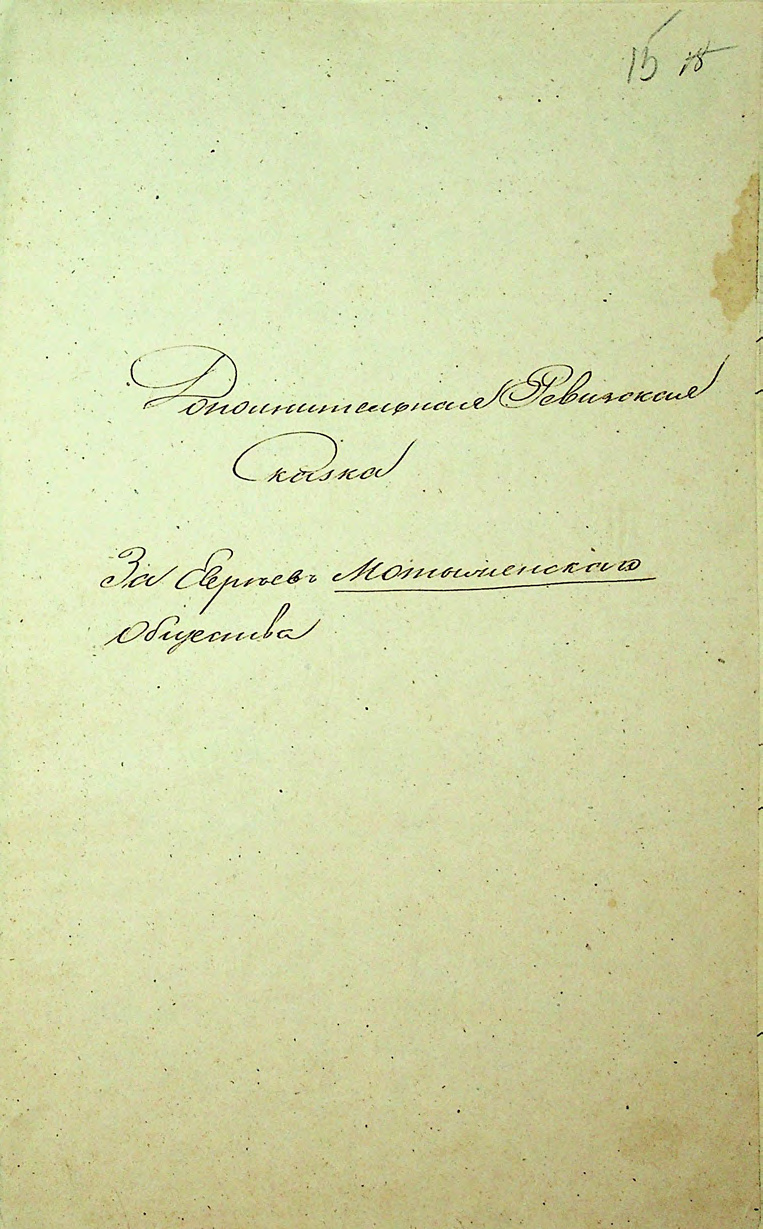 15 18
Дополнительная Ревизская
Сказка
За Евреевъ
Общества